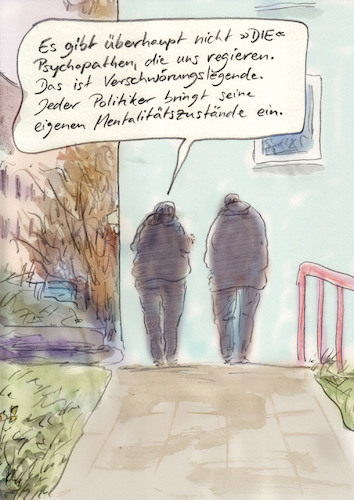 Es gibt überhaupt nicht »DIE«
Psychopathen, die uns regieren.
Das ist Verschwörungslegende.
Jeder Politiker bringt seine
eigenen Mentalitätszustände ein.